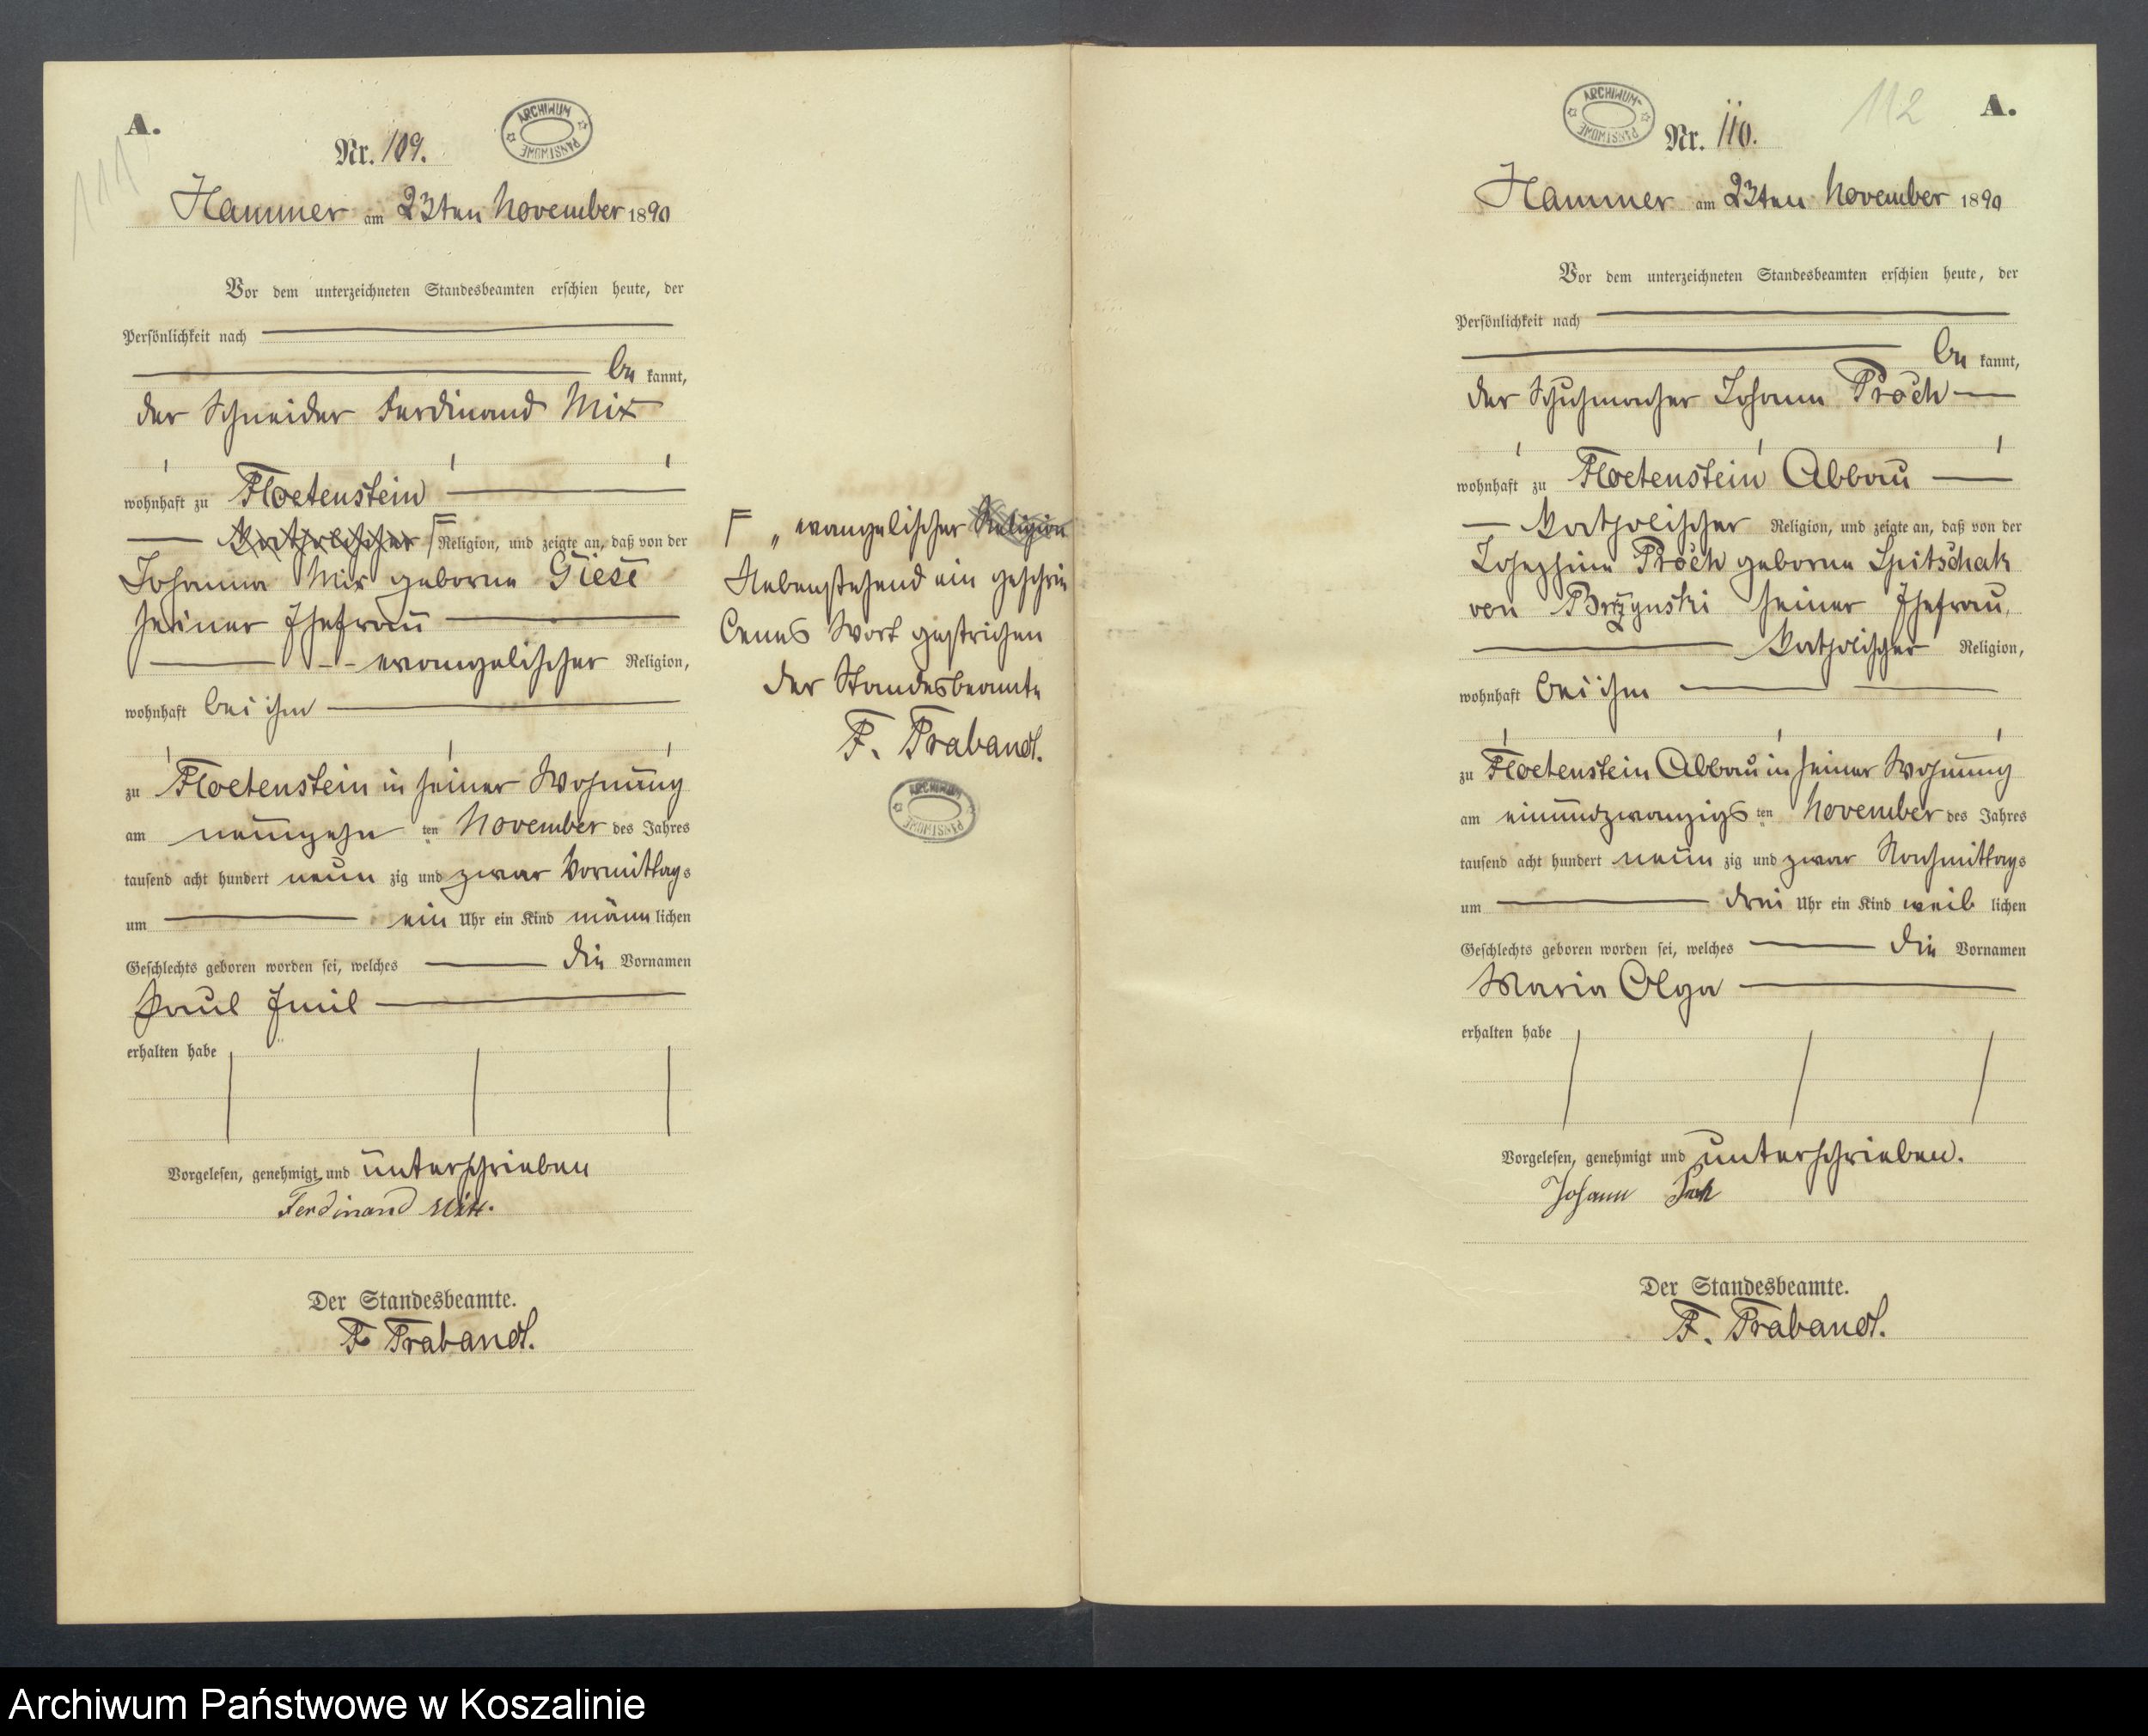 A.
111
ARCHIWUM PAŃSTWOWE
Nr. 109.
Hammer am 23ten November 1890
Vor dem unterzeichneten Standesbeamten erschien heute, der
Persönlichkeit nach
be kannt,
der Schneider Ferdinand Mix
wohnhaft zu Floetenstein
katholischer F Religion, und zeigte an, daß von der
Johanna Mix geborne Giese
seiner Ehefrau
evangelischer Religion,
wohnhaft bei ihm
zu Floetenstein in seiner Wohnung
am neunzehn ten November des Jahres
tausend acht hundert neun zig und zwar Vormittags
um ein Uhr ein Kind männ lichen
Geschlechts geboren worden sei, welches die Vornamen
Paul Emil
erhalten habe
Vorgelesen, genehmigt und unterschrieben
Ferdinand Mix.
Der Standesbeamte.
F. Trabandt.
F „ evangelischer Religion
Nebenstehend ein geschrie
benes Wort gestrichen
der Standesbeamte
F. Trabandt.
ARCHIWUM PAŃSTWOWE
ARCHIWUM PAŃSTWOWE
112
A.
Nr. 110.
Hammer am 23ten November 1890
Vor dem unterzeichneten Standesbeamten erschien heute, der
Persönlichkeit nach
be kannt,
der Schuhmacher Johann Proch
wohnhaft zu Floetenstein Abbau
katholischer Religion, und zeigte an, daß von der
Josephine Proch geborne Spitschak
von Brzynski seiner Ehefrau,
katholischer Religion,
wohnhaft bei ihm
zu Floetenstein Abbau in seiner Wohnung
am einundzwanzigs ten November des Jahres
tausend acht hundert neun zig und zwar Nachmittags
um drei Uhr ein Kind weib lichen
Geschlechts geboren worden sei, welches die Vornamen
Maria Olga
erhalten habe
Vorgelesen, genehmigt und unterschrieben.
Johann
Der Standesbeamte.
F. Trabandt.
Archiwum Państwowe w Koszalinie